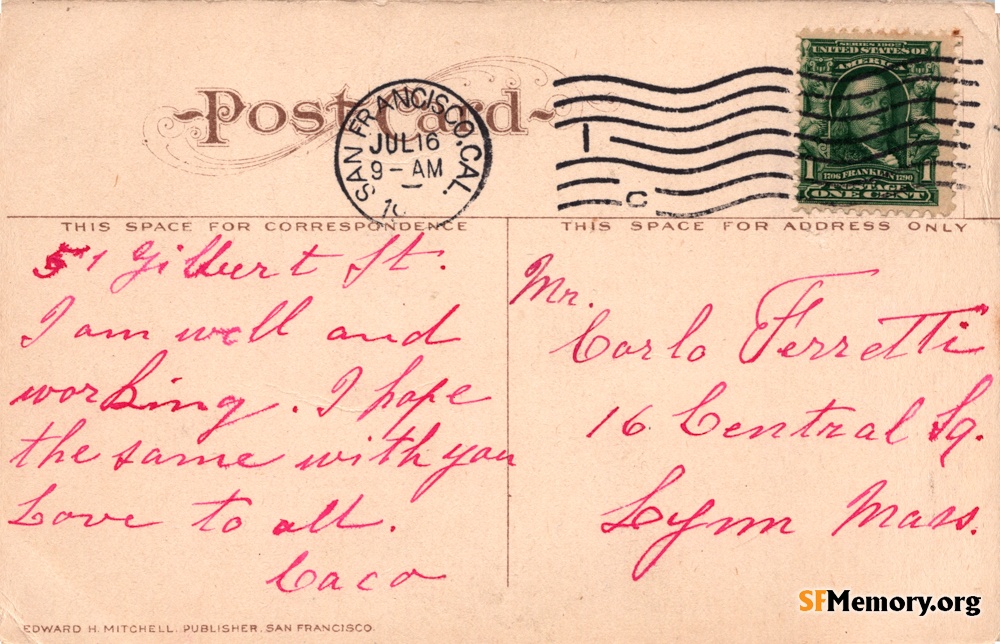 Post Card
SAN FRANCISCO, CAL.
JUL 16
9 - AM
SERIES 1902
UNITED STATES OF
AMERICA
1 1706 FRANKLIN 1790 1
POSTAGE
ONE CENT
THIS SPACE FOR CORRESPONDENCE
51 Gilbert St.
I am well and
working. I hope
the same with you
Love to all.
Caco
THIS SPACE FOR ADDRESS ONLY
Mr.
Carlo Ferretti
16 Central Sq.
Lynn Mass.
EDWARD H. MITCHELL. PUBLISHER. SAN FRANCISCO.
SFMemory.org